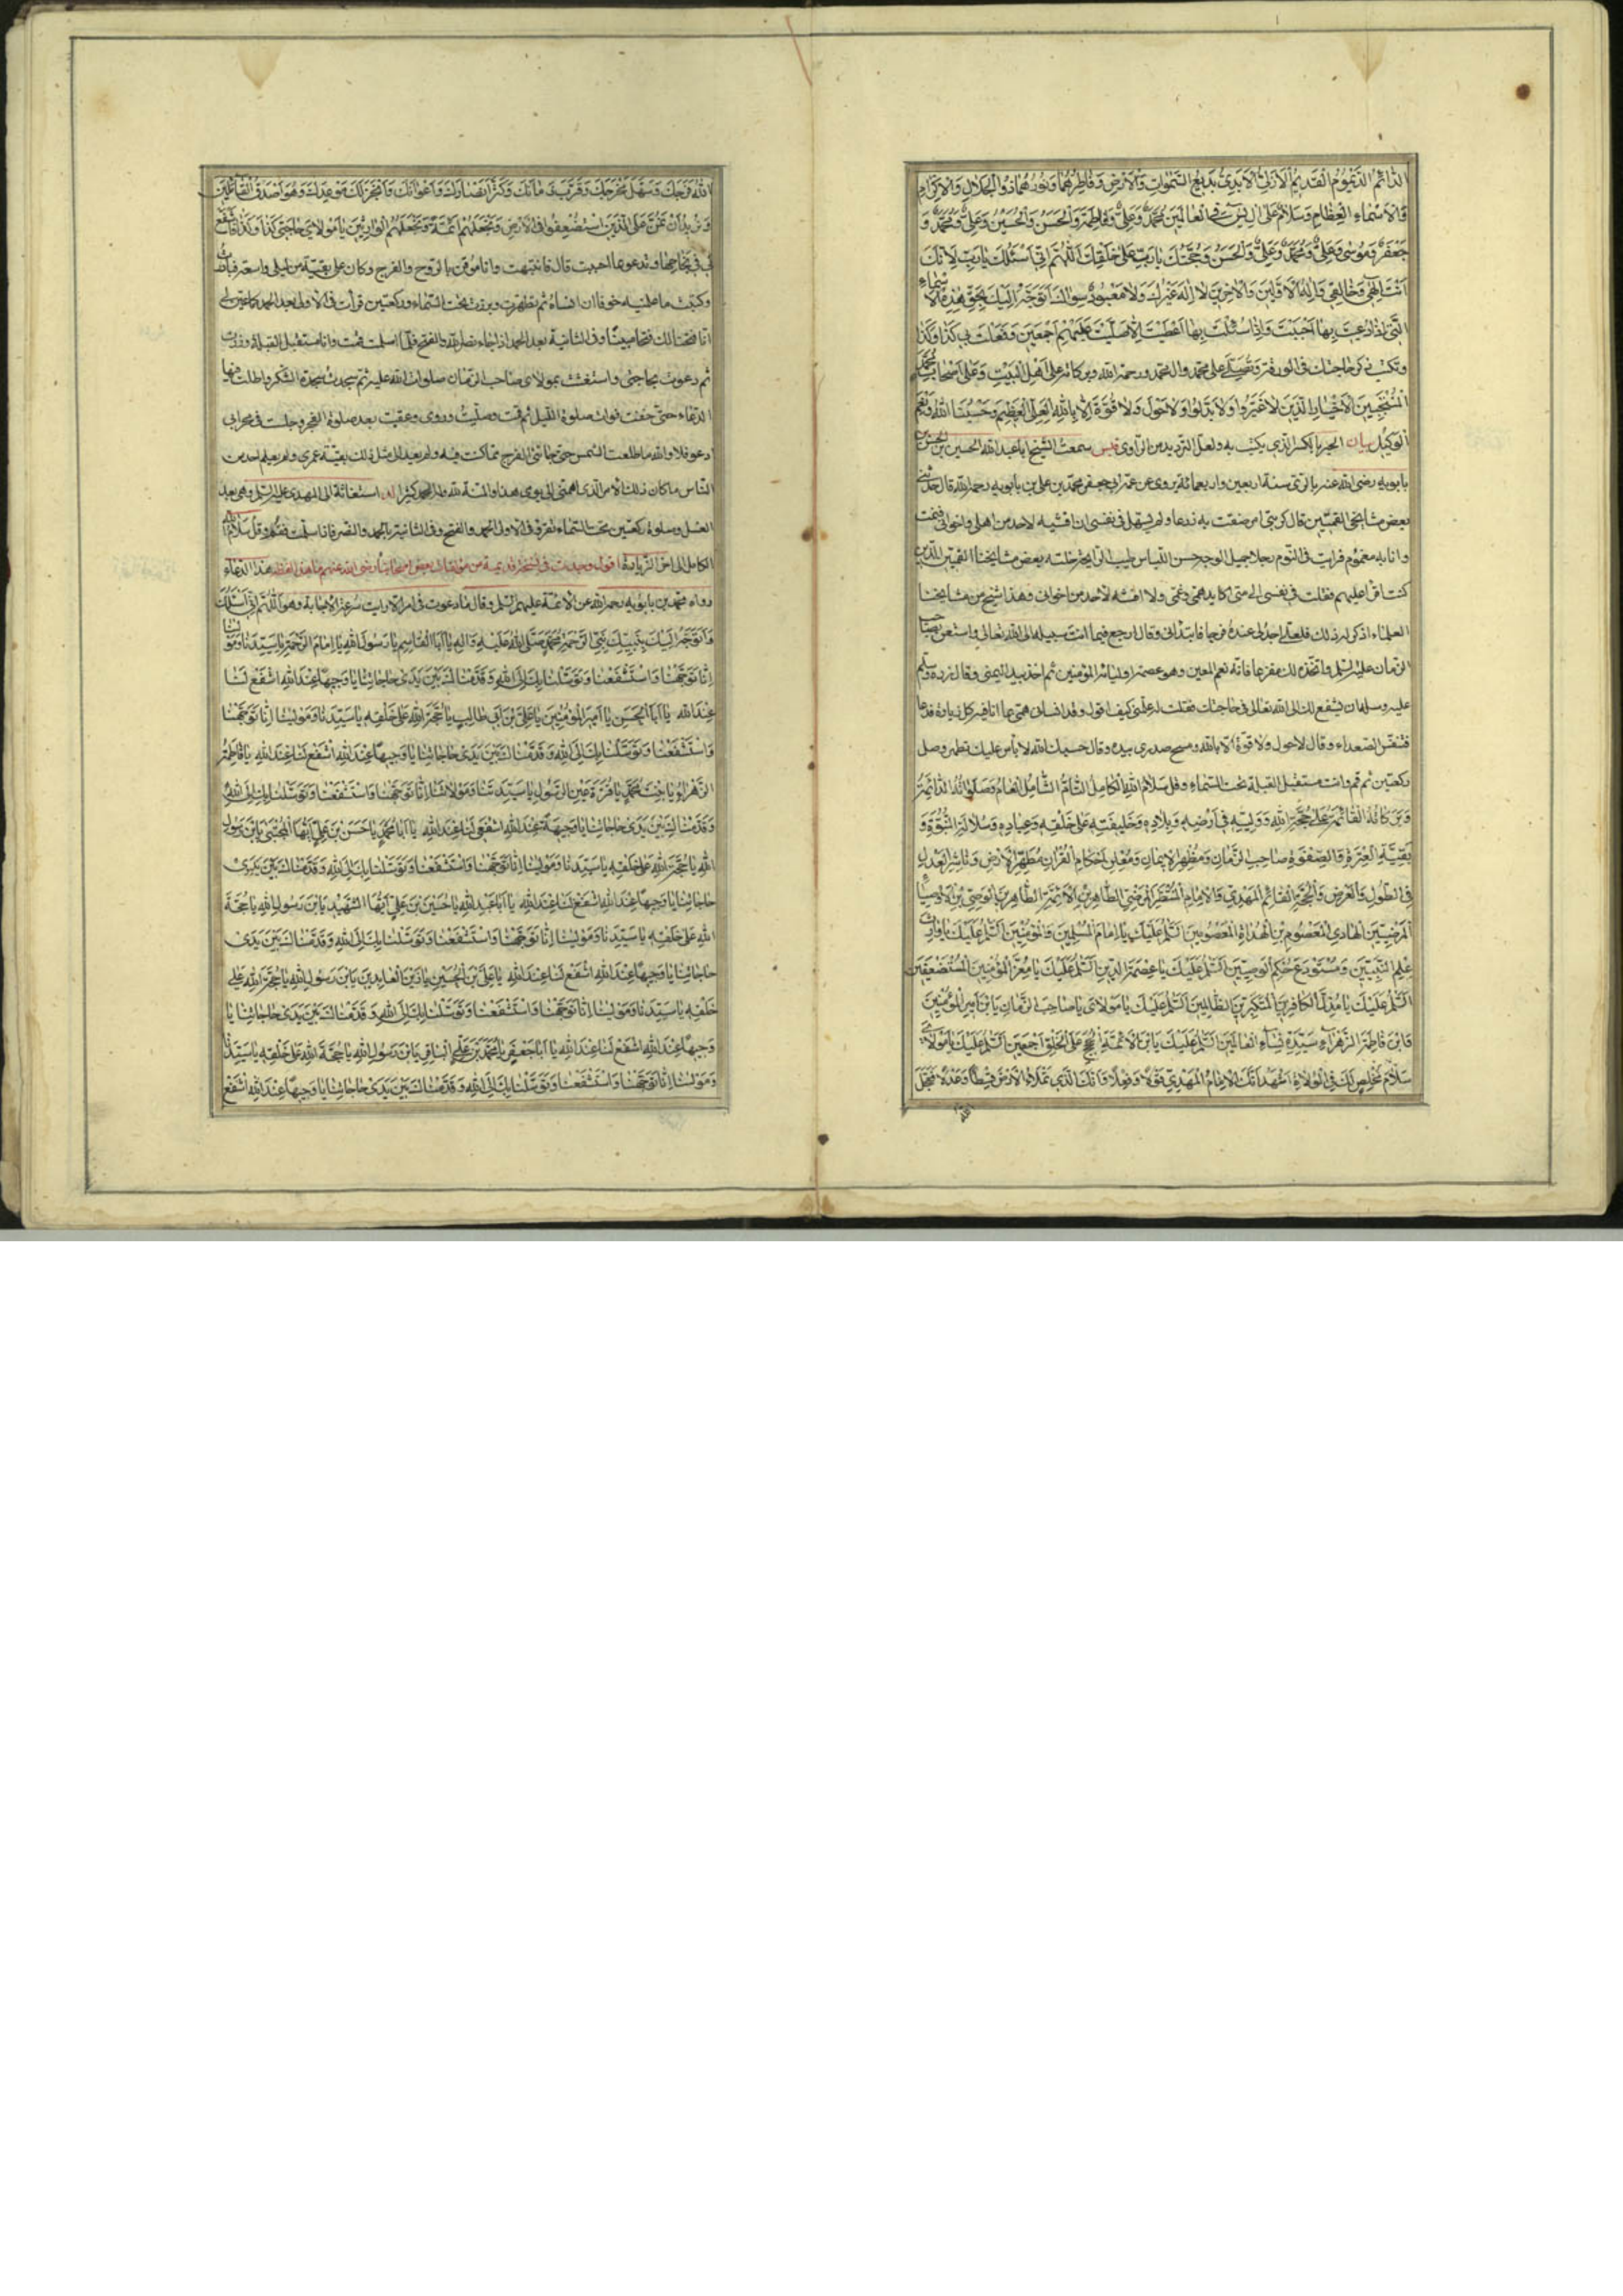 الدَّائِمُ الدَّيْمُومُ الْقَدِيمُ الْأَزَلِيُّ الْأَبَدِيُّ بَدِيعُ السَّمٰوَاتِ وَالْأَرْضِ وَفَاطِرُهُمَا وَنُورُهُمَا ذُو الْجَلَالِ وَالْإِكْرَامِ
وَالْأَسْمَاءِ الْعِظَامِ وَسَلَامٌ عَلَى آلِ يٰسٓ فِي الْعَالَمِينَ مُحَمَّدٌ وَعَلِيٌّ وَفَاطِمَةُ وَالْحَسَنُ وَالْحُسَيْنُ وَعَلِيٌّ وَمُحَمَّدٌ وَ
جَعْفَرٌ وَمُوسٰى وَعَلِيٌّ وَمُحَمَّدٌ وَعَلِيٌّ وَالْحَسَنُ وَحُجَّتُكَ يَا رَبِّ عَلٰى خَلْقِكَ اللّٰهُمَّ إِنِّي أَسْئَلُكَ يَا رَبِّ لِأَنَّكَ
أَنْتَ إِلٰهِي وَخَالِقِي وَإِلٰهُ الْأَوَّلِينَ وَالْآخِرِينَ لَا إِلٰهَ غَيْرُكَ وَلَا مَعْبُودَ سِوَاكَ أَتَوَجَّهُ إِلَيْكَ بِحَقِّ هٰذِهِ الْأَسْمَاءِ
الَّتِي إِذَا دُعِيتَ بِهَا أَجَبْتَ وَإِذَا سُئِلْتَ بِهَا أَعْطَيْتَ إِلَّا صَلَّيْتَ عَلَيْهِمْ أَجْمَعِينَ وَفَعَلْتَ بِي كَذَا وَكَذَا
وتكتب ذكر حاجتك في الورقة وَتُصَلِّي على محمد وآل محمد ورحمة الله وبركاته على أَهْلِ الْبَيْتِ وَعَلَى أَصْحَابِ مُحَمَّدٍ
الْمُنْتَجَبِينَ الْأَخْيَارِ الَّذِينَ لَا غَيَّرُوا وَلَا بَدَّلُوا وَلَا حَوْلَ وَلَا قُوَّةَ إِلَّا بِاللّٰهِ الْعَلِيِّ الْعَظِيمِ وَحَسْبُنَا اللّٰهُ وَنِعْمَ
الْوَكِيلُ بيان الحبر بالكسر الذي يكتب به ولعل الترديد من الراوي قبس سمعت الشيخ ابا عبد الله الحسين بن الحسن بن
بابويه رضي الله عنه بالري سنة اربعين واربعمائة يروي عن عمه ابي جعفر محمد بن علي بن بابويه رحمه الله قال حدثني
بعض مشايخي القميين قال كربني امر ضقت به ذرعا ولم يسهل في نفسي ان افشيه لاحد من اهلي واخواني فنمت
وانا به مغموم فرايت في النوم رجلا جميل الوجه حسن اللباس طيب الرايحة خلته بعض مشايخنا القميين الذين
كنت اقرأ عليهم فقلت في نفسي الى متى اكابد همي وغمي ولا افشيه لاحد من اخواني وهذا شيخ من مشايخنا
العلماء اذكر له ذلك فلعلي اجد لي عنده فرجا فابتدأني وقال ارجع فيما انت بسبيله الى الله تعالى واستعن بصاحب
الزمان عليه السلم واتخذه لك مفزعا فانه نعم المعين وهو عصمة اوليائه المؤمنين ثم اخذ بيدي اليمنى وقال زره وسلم
عليه وسله ان يشفع لك الى الله تعالى في حاجتك فقلت له علمني كيف اقول وقد انساني همي بما انا فيه كل زيارة ودعاء
فتنفس الصعداء وقال لا حول ولا قوة الا بالله ومسح صدري بيده وقال حسبك الله لا باس عليك تطهر وصل
ركعتين ثم قم وانت مستقبل القبلة تحت السماء وقل سَلَامُ اللّٰهِ الْكَامِلُ التَّامُّ الشَّامِلُ الْعَامُّ وَصَلَوَاتُهُ الدَّائِمَةُ
وَبَرَكَاتُهُ الْقَائِمَةُ عَلَى حُجَّةِ اللّٰهِ وَوَلِيِّهِ فِي أَرْضِهِ وَبِلَادِهِ وَخَلِيفَتِهِ عَلَى خَلْقِهِ وَعِبَادِهِ وَسُلَالَةِ النُّبُوَّةِ وَ
بَقِيَّةِ الْعِتْرَةِ وَالصَّفْوَةِ صَاحِبِ الزَّمَانِ وَمُظْهِرِ الْإِيمَانِ وَمُعْلِنِ أَحْكَامِ الْقُرْآنِ مُطَهِّرِ الْأَرْضِ وَنَاشِرِ الْعَدْلِ
فِي الطُّولِ وَالْعَرْضِ وَالْحُجَّةِ الْقَائِمِ الْمَهْدِيِّ وَالْإِمَامِ الْمُنْتَظَرِ الْمَرْضِيِّ الطَّاهِرِ بْنِ الْأَئِمَّةِ الطَّاهِرِينَ الْوَصِيِّ بْنِ الْأَوْصِيَاءِ
الْمَرْضِيِّينَ الْهَادِي الْمَعْصُومِ بْنِ الْهُدَاةِ الْمَعْصُومِينَ السَّلَمُ عَلَيْكَ يَا إِمَامَ الْمُسْلِمِينَ وَالْمُؤْمِنِينَ السَّلَمُ عَلَيْكَ يَا وَارِثَ
عِلْمِ النَّبِيِّينَ وَمُسْتَوْدَعَ حِكَمِ الْوَصِيِّينَ السَّلَمُ عَلَيْكَ يَا عِصْمَةَ الدِّينِ السَّلَمُ عَلَيْكَ يَا مُعِزَّ الْمُؤْمِنِينَ الْمُسْتَضْعَفِينَ
السَّلَمُ عَلَيْكَ يَا مُذِلَّ الْكَافِرِينَ الْمُتَكَبِّرِينَ الظَّالِمِينَ السَّلَمُ عَلَيْكَ يَا مَوْلَايَ يَا صَاحِبَ الزَّمَانِ يَا بْنَ أَمِيرِ الْمُؤْمِنِينَ
وَابْنَ فَاطِمَةَ الزَّهْرَاءِ سَيِّدَةِ نِسَاءِ الْعَالَمِينَ السَّلَمُ عَلَيْكَ يَا بْنَ الْأَئِمَّةِ الْحُجَجِ عَلَى الْخَلْقِ أَجْمَعِينَ السَّلَمُ عَلَيْكَ يَا مَوْلَايَ
سَلَامَ مُخْلِصٍ لَكَ فِي الْوَلَاءِ أَشْهَدُ أَنَّكَ الْإِمَامُ الْمَهْدِيُّ قَوْلًا وَفِعْلًا وَأَنَّكَ الَّذِي تَمْلَأُ الْأَرْضَ قِسْطًا وَعَدْلًا فَعَجَّلَ
اللّٰهُ فَرَجَكَ وَسَهَّلَ مَخْرَجَكَ وَقَرَّبَ زَمَانَكَ وَكَثَّرَ أَنْصَارَكَ وَأَعْوَانَكَ وَأَنْجَزَ لَكَ مَوْعِدَكَ وَهُوَ أَصْدَقُ الْقَائِلِينَ
وَنُرِيدُ أَنْ نَمُنَّ عَلَى الَّذِينَ اسْتُضْعِفُوا فِي الْأَرْضِ وَنَجْعَلَهُمْ أَئِمَّةً وَنَجْعَلَهُمُ الْوَارِثِينَ يَا مَوْلَايَ حَاجَتِي كَذَا وَكَذَا فَاشْفَعْ
لِي فِي نَجَاحِهَا وتدعو بما احببت قال فانتبهت وانا موقن بالروح والفرج وكان علي بقية من ليلي واسعة فبادرت
وكتبت ما علمنيه خوفا ان انساه ثم تطهرت وبرزت تحت السماء وركعتين قرأت في الاولى بعد الحمد كما عين لي
انا فتحنا لك فتحا مبينا وفي الثانية بعد الحمد اذا جاء نصر الله والفتح فلما سلمت قمت وانا مستقبل القبلة وزرت
ثم دعوت بحاجتي واستغثت بمولاي صاحب الزمان صلوات الله عليه ثم سجدت سجدة الشكر واطلت فيها
الدعاء حتى خفت فوات صلوة الليل ثم قمت وصليت وردي وعقبت بعد صلوة الفجر وجلست في محرابي
ادعو فلا والله ما طلعت الشمس حتى جائني الفرج مما كنت فيه ولم يعد الي مثل ذلك بقية عمري ولم يعلم احد من
الناس ما كان ذلك الامر الذي اهمني الى يومي هذا والمنة لله وله الحمد كثيرا استغاثة الى المهدي عليه السلم وهي بعد
الغسل وصلوة ركعتين تحت السماء تقرء في الاولى الحمد والفتح وفي الثانية بالحمد والنصر فاذا سلمت فقم وقل سَلَامُ اللّٰهِ
الكامل الى اخر الزيارة اقول وجدت في نسخة قديمة من مؤلفات بعض اصحابنا رضي الله عنهم ما هذا لفظه هذا الدعاء
رواه محمد بن بابويه رحمه الله عن الائمة عليهم السلم وقال ما دعوت في امر الا رايت سرعة الاجابة وهو اللّٰهُمَّ إِنِّي أَسْئَلُكَ
وَأَتَوَجَّهُ إِلَيْكَ بِنَبِيِّكَ نَبِيِّ الرَّحْمَةِ مُحَمَّدٍ صَلَّى اللّٰهُ عَلَيْهِ وَآلِهِ يَا أَبَا الْقَاسِمِ يَا رَسُولَ اللّٰهِ يَا إِمَامَ الرَّحْمَةِ يَا سَيِّدَنَا وَمَوْلٰينَا
إِنَّا تَوَجَّهْنَا وَاسْتَشْفَعْنَا وَتَوَسَّلْنَا بِكَ إِلَى اللّٰهِ وَقَدَّمْنَاكَ بَيْنَ يَدَيْ حَاجَاتِنَا يَا وَجِيهًا عِنْدَ اللّٰهِ اشْفَعْ لَنَا
عِنْدَ اللّٰهِ يَا أَبَا الْحَسَنِ يَا أَمِيرَ الْمُؤْمِنِينَ يَا عَلِيَّ بْنَ أَبِي طَالِبٍ يَا حُجَّةَ اللّٰهِ عَلَى خَلْقِهِ يَا سَيِّدَنَا وَمَوْلٰينَا إِنَّا تَوَجَّهْنَا
وَاسْتَشْفَعْنَا وَتَوَسَّلْنَا بِكَ إِلَى اللّٰهِ وَقَدَّمْنَاكَ بَيْنَ يَدَيْ حَاجَاتِنَا يَا وَجِيهًا عِنْدَ اللّٰهِ اشْفَعْ لَنَا عِنْدَ اللّٰهِ يَا فَاطِمَةُ
الزَّهْرَاءُ يَا بِنْتَ مُحَمَّدٍ يَا قُرَّةَ عَيْنِ الرَّسُولِ يَا سَيِّدَتَنَا وَمَوْلَاتَنَا إِنَّا تَوَجَّهْنَا وَاسْتَشْفَعْنَا وَتَوَسَّلْنَا بِكِ إِلَى اللّٰهِ
وَقَدَّمْنَاكِ بَيْنَ يَدَيْ حَاجَاتِنَا يَا وَجِيهَةً عِنْدَ اللّٰهِ اشْفَعِي لَنَا عِنْدَ اللّٰهِ يَا أَبَا مُحَمَّدٍ يَا حَسَنَ بْنَ عَلِيٍّ أَيُّهَا الْمُجْتَبٰى يَا بْنَ رَسُولِ
اللّٰهِ يَا حُجَّةَ اللّٰهِ عَلَى خَلْقِهِ يَا سَيِّدَنَا وَمَوْلٰينَا إِنَّا تَوَجَّهْنَا وَاسْتَشْفَعْنَا وَتَوَسَّلْنَا بِكَ إِلَى اللّٰهِ وَقَدَّمْنَاكَ بَيْنَ يَدَيْ
حَاجَاتِنَا يَا وَجِيهًا عِنْدَ اللّٰهِ اشْفَعْ لَنَا عِنْدَ اللّٰهِ يَا أَبَا عَبْدِ اللّٰهِ يَا حُسَيْنَ بْنَ عَلِيٍّ أَيُّهَا الشَّهِيدُ يَا بْنَ رَسُولِ اللّٰهِ يَا حُجَّةَ
اللّٰهِ عَلَى خَلْقِهِ يَا سَيِّدَنَا وَمَوْلٰينَا إِنَّا تَوَجَّهْنَا وَاسْتَشْفَعْنَا وَتَوَسَّلْنَا بِكَ إِلَى اللّٰهِ وَقَدَّمْنَاكَ بَيْنَ يَدَيْ
حَاجَاتِنَا يَا وَجِيهًا عِنْدَ اللّٰهِ اشْفَعْ لَنَا عِنْدَ اللّٰهِ يَا عَلِيَّ بْنَ الْحُسَيْنِ يَا زَيْنَ الْعَابِدِينَ يَا بْنَ رَسُولِ اللّٰهِ يَا حُجَّةَ اللّٰهِ عَلَى
خَلْقِهِ يَا سَيِّدَنَا وَمَوْلٰينَا إِنَّا تَوَجَّهْنَا وَاسْتَشْفَعْنَا وَتَوَسَّلْنَا بِكَ إِلَى اللّٰهِ وَقَدَّمْنَاكَ بَيْنَ يَدَيْ حَاجَاتِنَا يَا
وَجِيهًا عِنْدَ اللّٰهِ اشْفَعْ لَنَا عِنْدَ اللّٰهِ يَا أَبَا جَعْفَرٍ يَا مُحَمَّدَ بْنَ عَلِيٍّ الْبَاقِرَ يَا بْنَ رَسُولِ اللّٰهِ يَا حُجَّةَ اللّٰهِ عَلَى خَلْقِهِ يَا سَيِّدَنَا
وَمَوْلٰينَا إِنَّا تَوَجَّهْنَا وَاسْتَشْفَعْنَا وَتَوَسَّلْنَا بِكَ إِلَى اللّٰهِ وَقَدَّمْنَاكَ بَيْنَ يَدَيْ حَاجَاتِنَا يَا وَجِيهًا عِنْدَ اللّٰهِ اشْفَعْ